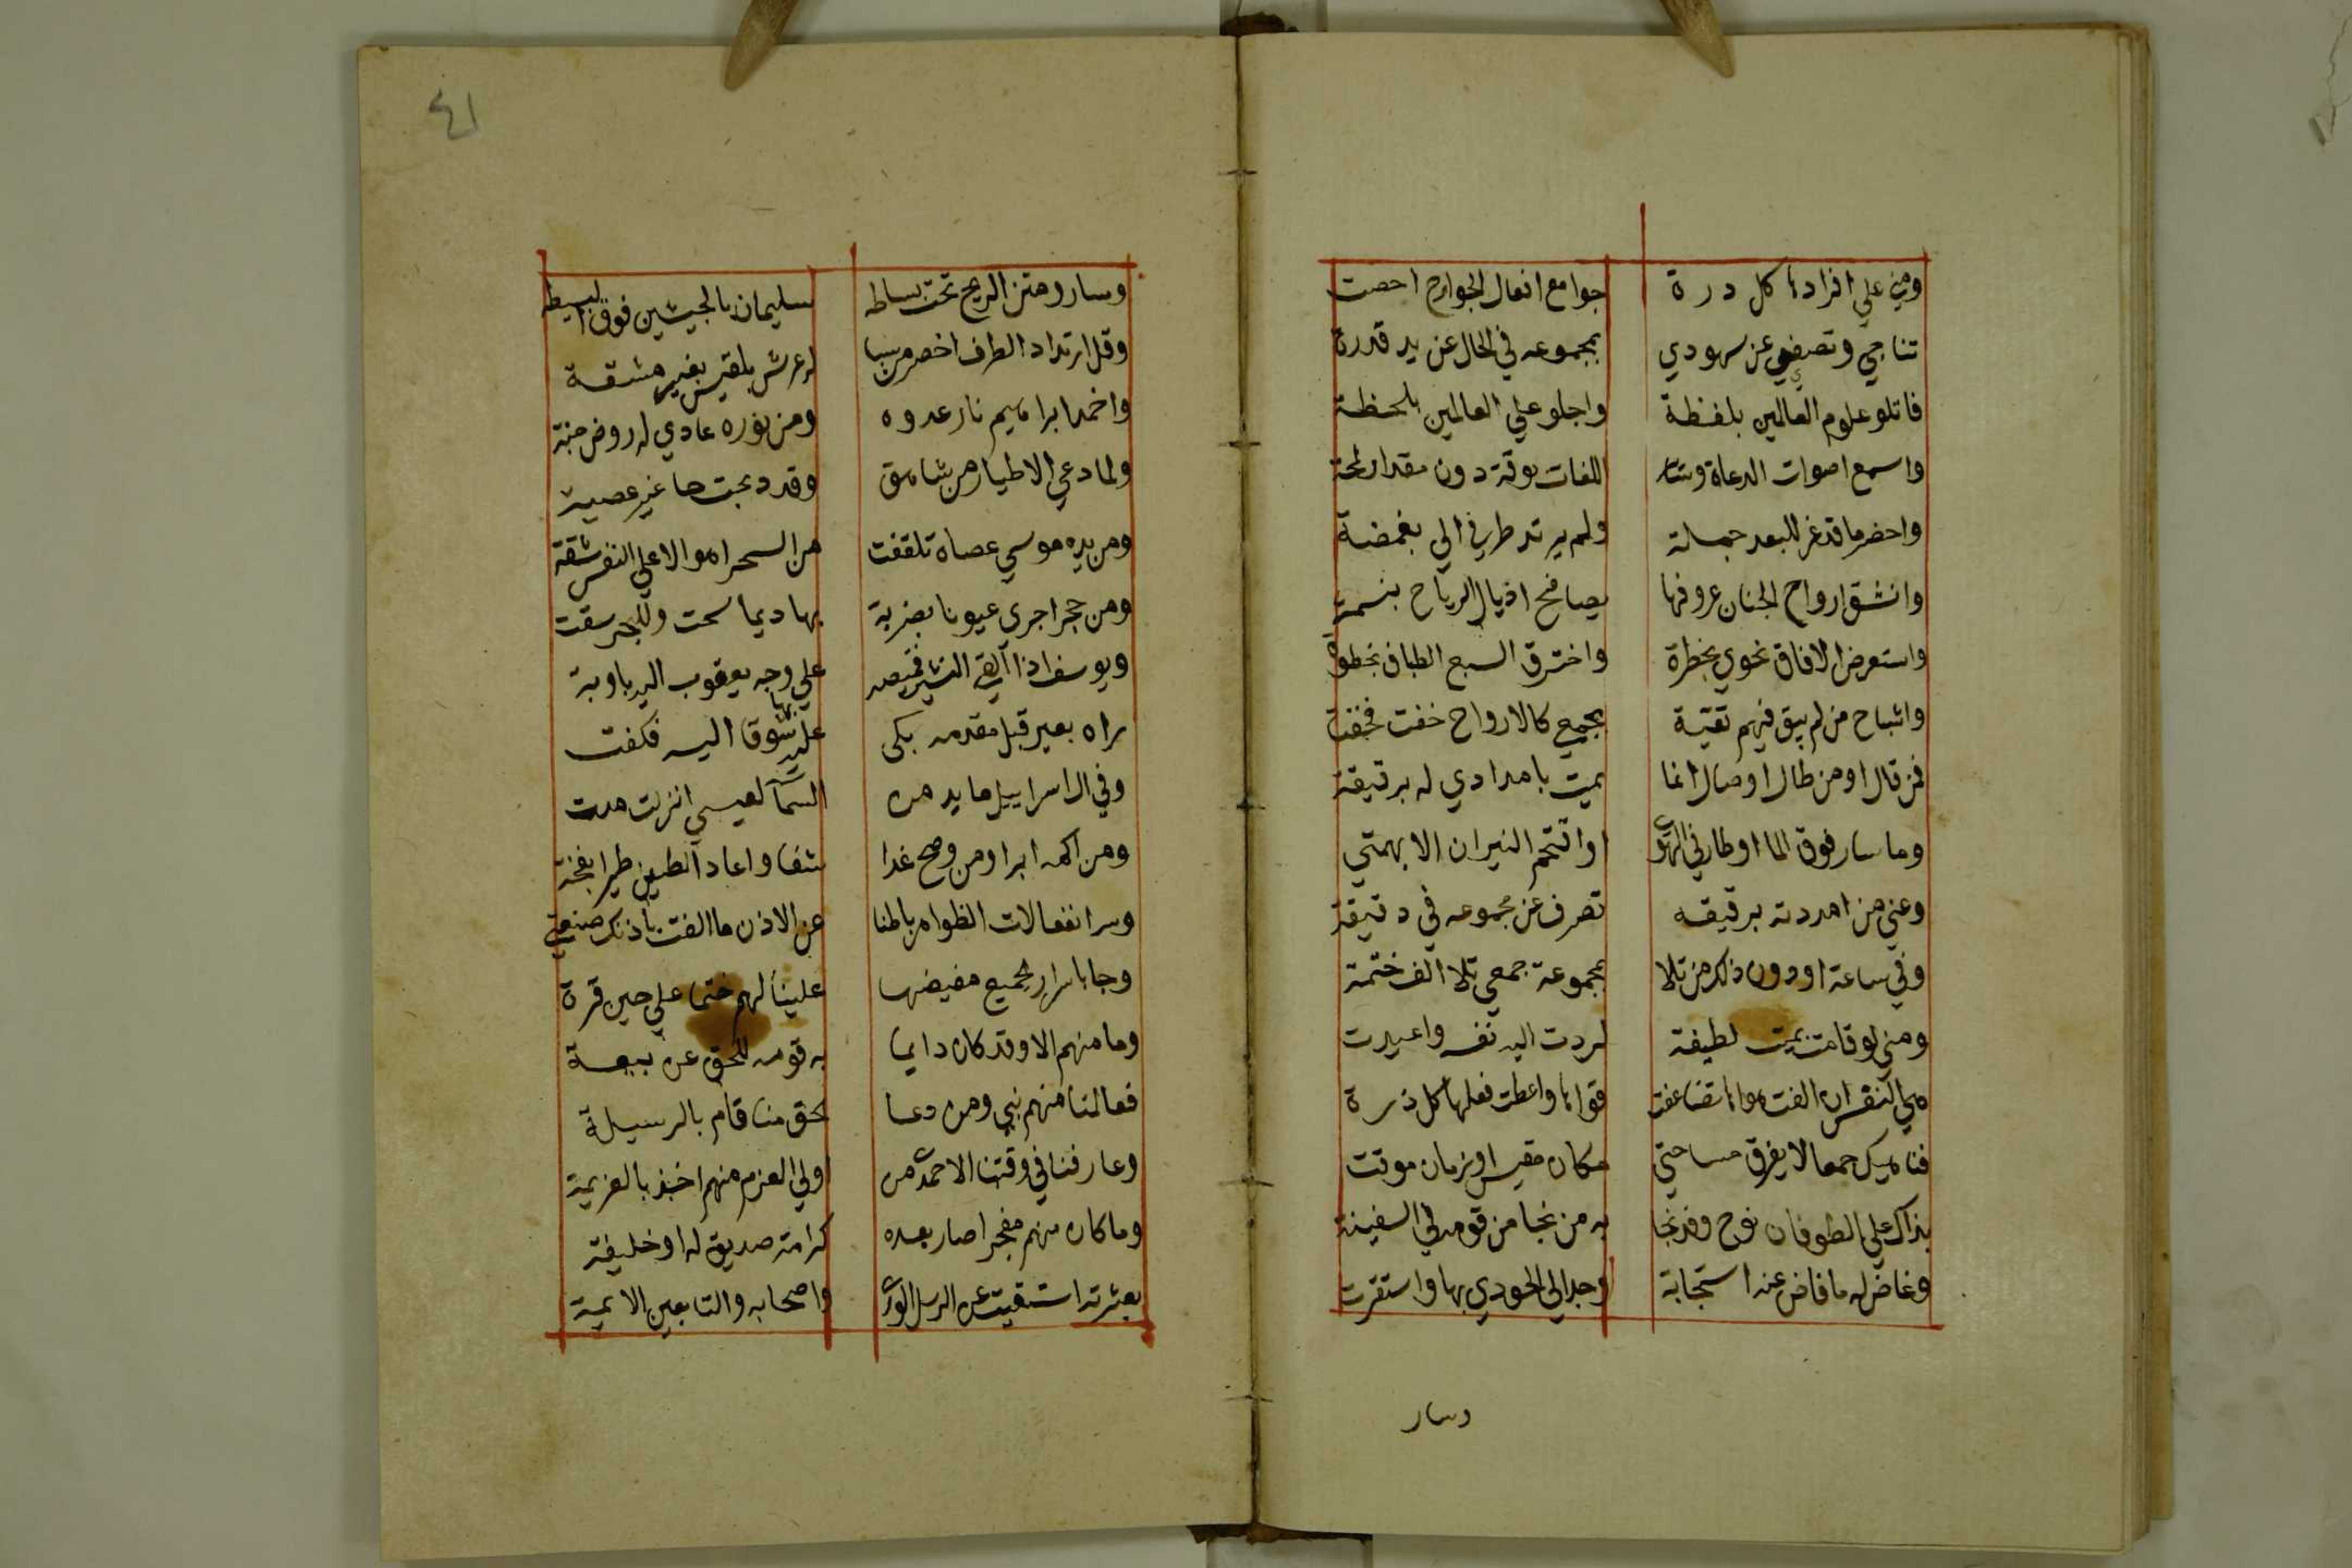 ومني علي افرادها كل درة جوامع افعال الجوارح احصت
تناجي وتصغي عن شهودي بمجموعه في الحال عن يد قدرة
فاتلو علوم العالمين بلفظة واجلو علي العالمين بلحظة
واسمع اصوات الدعاة وسائر اللغات بوقت دون مقدار لمحة
واحضر ما قد عز للبعد حمله ولم يرتد طرفي الي بغمضة
وانشق ارواح الجنان عرفها يصافح اذيال الرياح بنسمة
واستعرض الافاق نحوي بخطرة واخترق السبع الطباق بخطوة
واشباح من لم يبق فيهم بقية بجمعي كالارواح خفت فخفت
فمن قال او من طال او صال انما يمت بامدادي له برقيقة
وما سار فوق الما او طار في الهوا او اقتحم النيران الا بهمتي
وعني من امددته برقيقه تصرف عن مجموعه في دقيقة
وفي ساعة او دون ذلك من تلا بمجموعة جمعي تلا الف ختمة
ومني لو قامت بميت لطيفة لردت اليه نفسه واعيدت
هي النفس ان القت هواها تضاعفت قواها واعطت فعلها كل ذرة
فناهيك جمعا لا يفرق مساحتي مكان مقيس او زمان موقت
بذاك علي الطوفان نوح وقد نجا به من نجا من قومه في السفينة
وغاض له ما فاض عنه استجابة وجد الي الجودي بها واستقرت
وسار
٤١
وسار ومتن الريح تحت بساطه سليمان بالجيشين فوق البسيطة
وقبل ارتداد الطرف احضر من سبا له عرش بلقيس بغير مشقة
واخمد ابراهيم نار عدوه ومن نوره عادي له روض جنة
ولما دعي الاطيار من شاهق وقد ذبحت جا غير عصية
ومن يده موسي عصاه تلقفت من السحر اهوالا علي النفس شقة
ومن حجر اجري عيونا بضربة بها ديما سحت وللبحر سقت
ويوسف اذ القي البشير قميصه علي وجه يعقوب اليه باوبة
راه بعين قبل مقدمه بكي عليه بها شوقا اليه فكفت
وفي ال اسراييل مايدة من السما لعيسي انزلت مدت
ومن اكمه ابرا ومن وضح غدا شفا واعاد الطين طيرا بنفخة
وسر انفعالات الظواهر باطنا عن الاذن ما القت باذنك صنعتي
وجا باسرار الجميع مفيضها علينا لهم ختما علي حين فترة
وما منهم الا وقد كان داعيا به قومه للحق عن تبعة
فعالمنا منهم نبي ومن دعا لحق منا قام بالرسيلة
وعارفنا في وقتنا الاحمدي من اولي العزم منهم اخذ بالعزيمة
وما كان منهم معجزا صار بعده كرامة صديق له او خليفة
بعترته استغنيت عن الرسل الوري واصحابه والتابعين الايمة